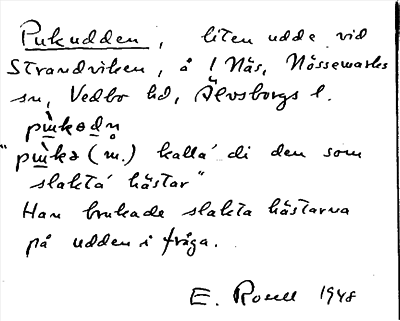 Pukudden, liten udde vid
Strandviken, å 1 Näs, Nössemarks
sn, Vedbo hd, Älvsborgs l.
"pɯ̀kə (m.) kalla' di den som
slakta' hästar"
Han brukade slakta hästarna
på udden i fråga.
E. 1948